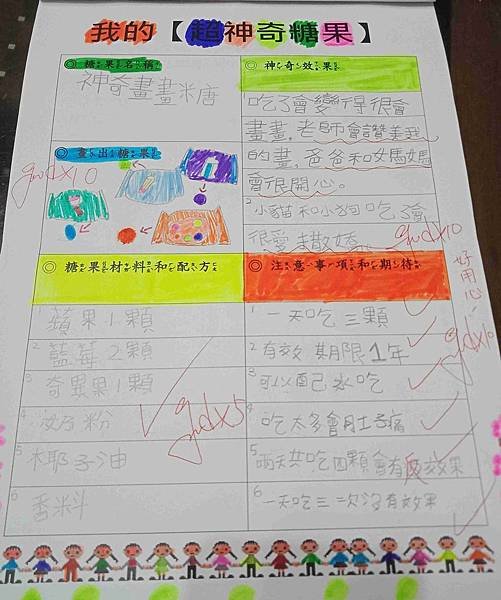 我的【超神奇糖果】
◎糖果名稱
神奇畫畫米唐
◎神奇效果
吃了會變得很會
畫畫,老師會讚美我
的畫,爸爸和媽媽
會很開心。
2小貓和小狗吃了會
很愛撒嬌。
good x10
◎畫出糖果
good x10
◎糖果材料和配方
1 蘋果1顆
2 藍莓2顆
3 奇異果1顆
4 奶粉
5 椰子油
6 香料
good x5
◎注意事項和期待
好用心!
1 一天吃三顆
2 有效期限1年
3 可以自己來吃
4 吃太多會肚子痛
5 兩天共吃四顆會有反效果
6 一天吃三次沒有效果
good x10